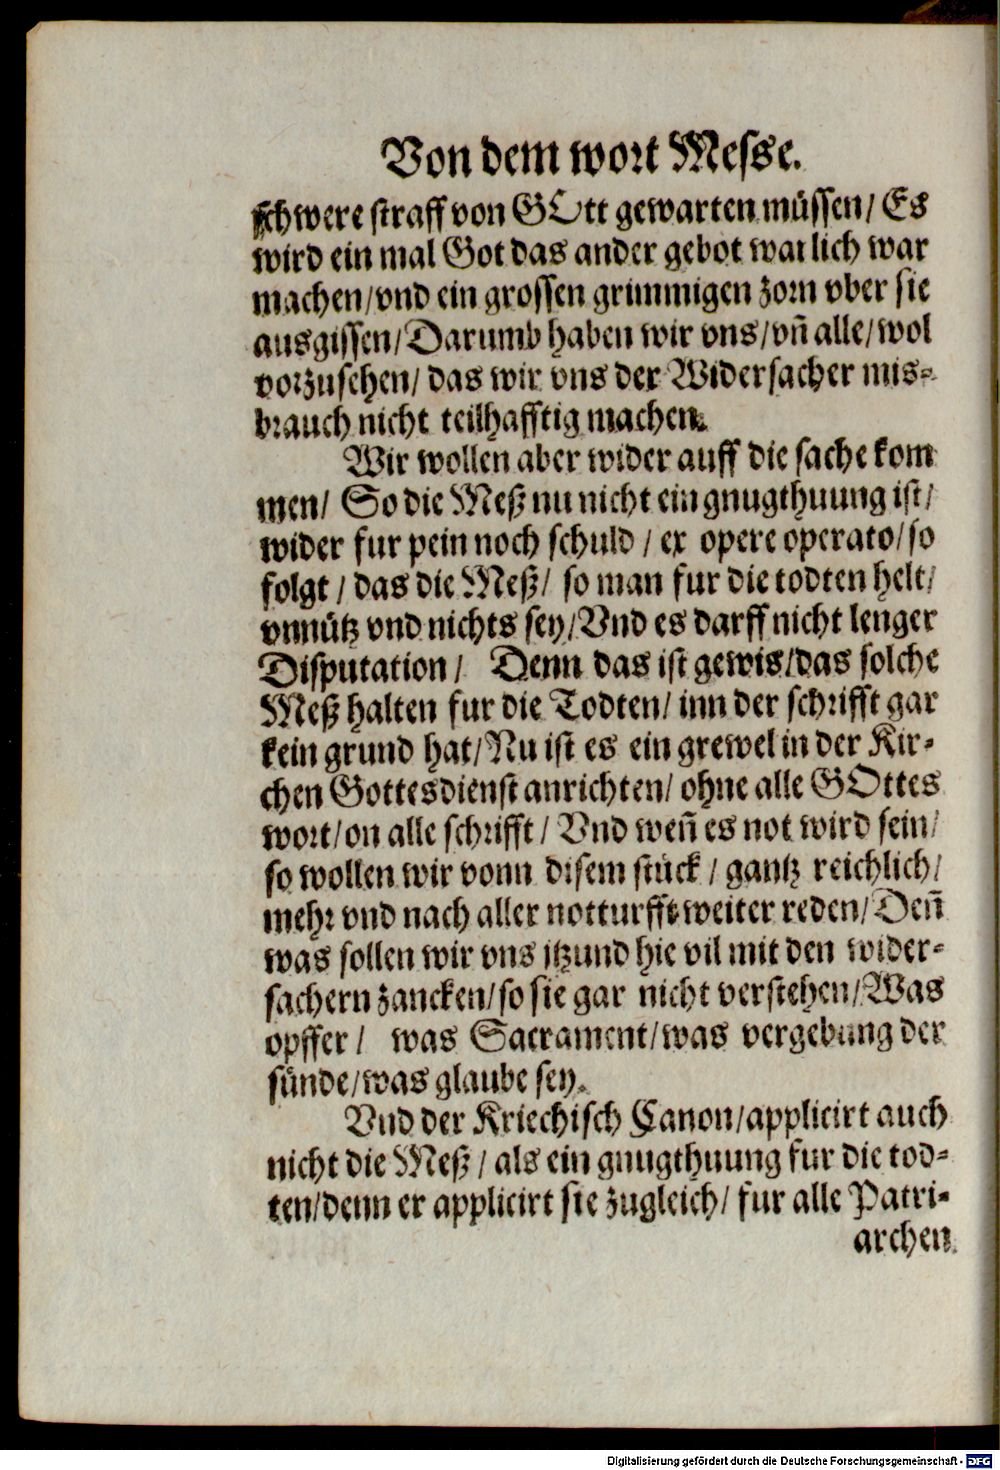 Von dem wort Messe.
schwere straff von GOtt gewarten müssen/ Es
wird ein mal Got das ander gebot warlich war
machen/vnd ein grossen grimmigen zorn vber sie
ausgissen/Darumb haben wir vns/vn̄ alle/wol
vorzusehen/ das wir vns der Widersacher mis⸗
brauch nicht teilhafftig machen.
Wir wollen aber wider auff die sache kom
men/ So die Meß nu nicht ein gnugthuung ist/
wider fur pein noch schuld / ex opere operato/so
folgt / das die Meß/ so man fur die todten helt/
vnnütz vnd nichts sey/Vnd es darff nicht lenger
Disputation / Denn das ist gewis/das solche
Meß halten fur die Todten/ inn der schrifft gar
kein grund hat/Nu ist es ein grewel in der Kir⸗
chen Gottesdienst anrichten/ ohne alle GOttes
wort/on alle schrifft / Vnd wen̄ es not wird sein/
so wollen wir vonn disem stück / gantz reichlich/
mehr vnd nach aller notturfft weiter reden/Den̄
was sollen wir vns itzund hie vil mit den wider⸗
sachern zancken/so sie gar nicht verstehen/Was
opffer / was Sacrament/was vergebung der
sünde/was glaube sey.
Vnd der Kriechisch Canon/applicirt auch
nicht die Meß / als ein gnugthuung fur die tod⸗
ten/denn er applicirt sie zugleich/ fur alle Patri⸗
archen.
Digitalisierung gefördert durch die Deutsche Forschungsgemeinschaft - DFG